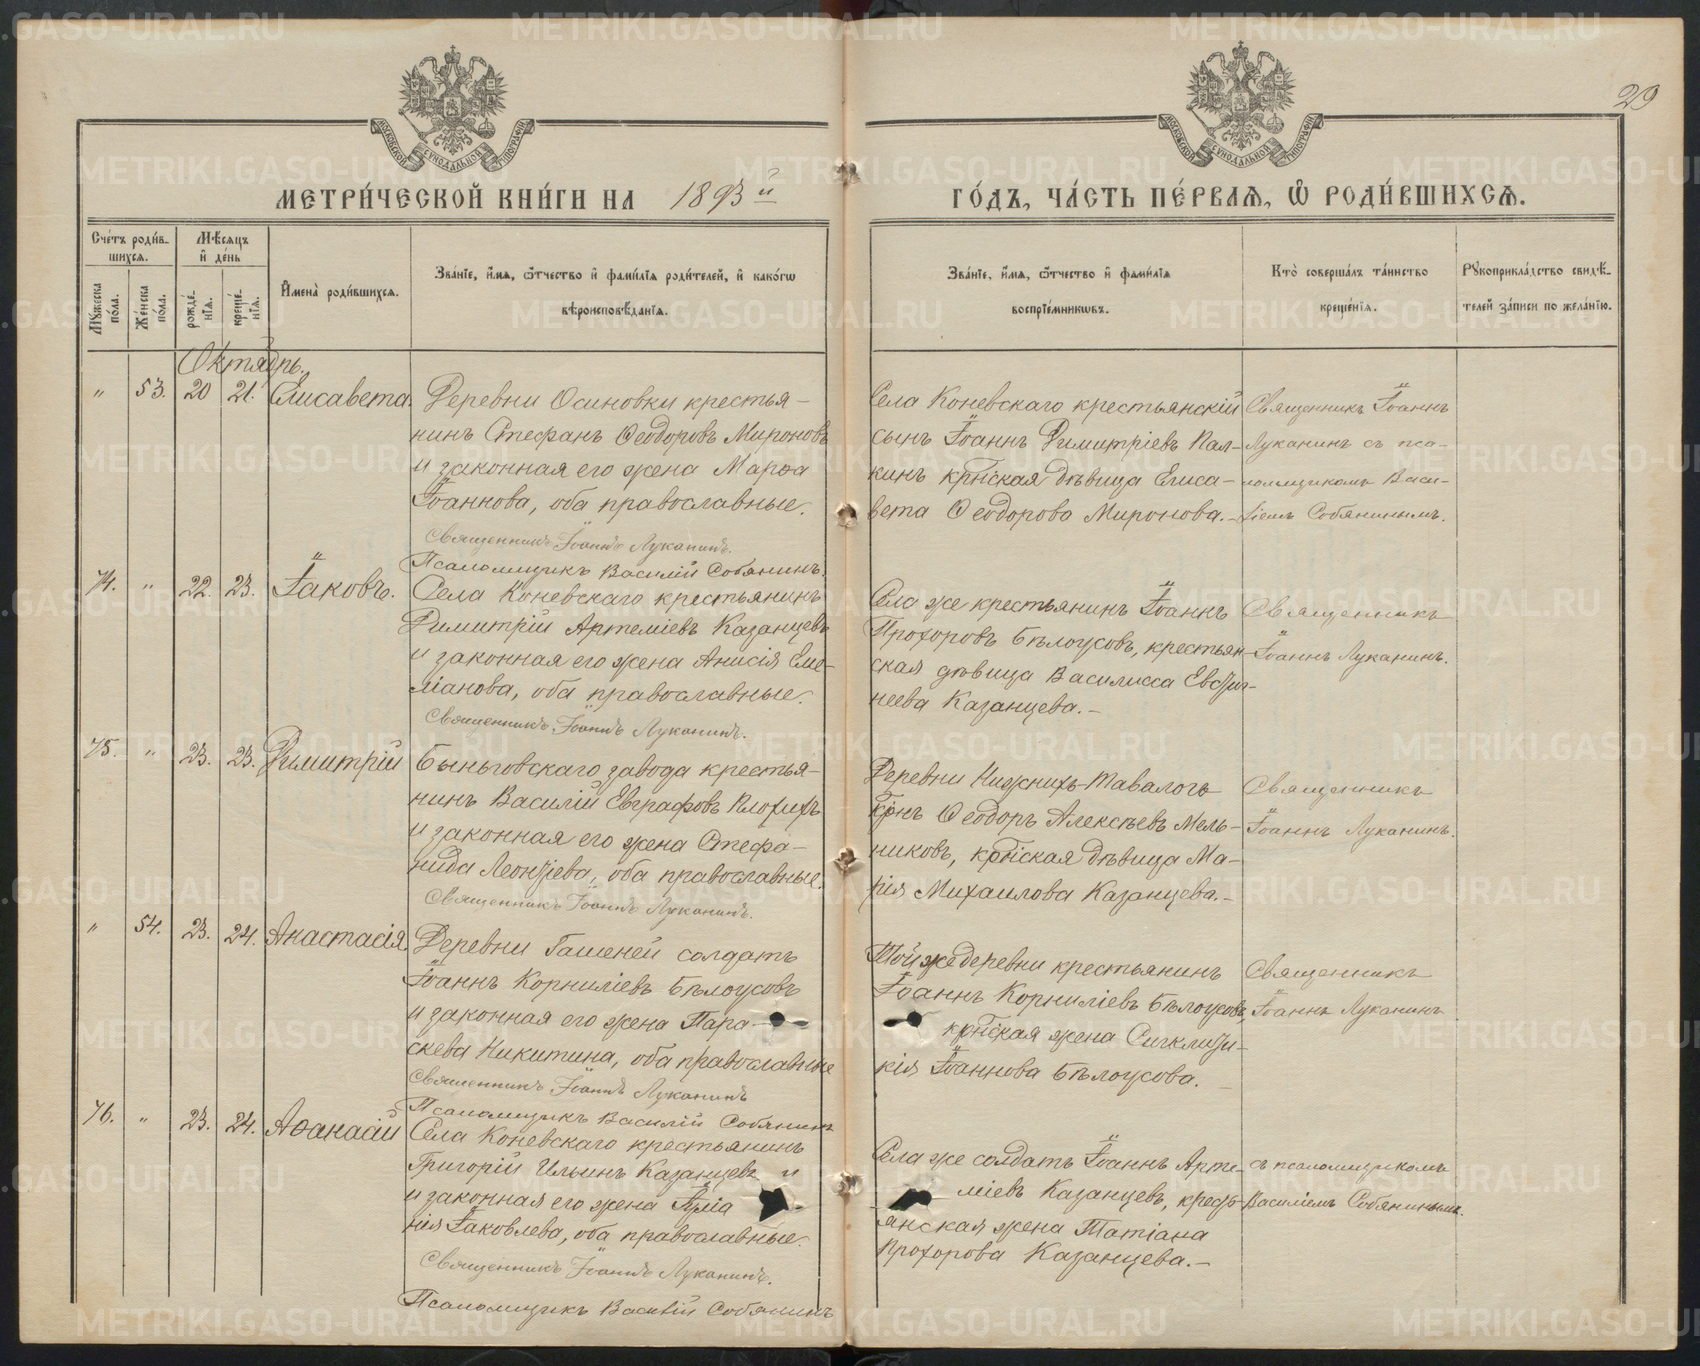 29
МЕТРИ́ЧЕСКОЙ КНИ́ГИ НА 1893й
ГО́ДЪ, ЧА́СТЬ ПЕ́РВАЯ, Ѽ РОДИ́ВШИХСЯ.
Сче́тъ роди́в-
шихся.
Мѣ́сяцъ
и҆ де́нь
Мꙋ́жеска
по́ла.
Же́нска
по́ла.
рожде́-
нїя.
креще́-
нїя.
И҆мена̀ роди́вшихся.
Зва́нїе, и҆́мя, ѻ҆́тчество и҆ фами́лїя роди́телей, и҆ како́гѡ
вѣроисповѣ́данїя.
Зва́нїе, и҆́мя, ѻ҆́тчество и҆ фами́лїя
воспрїе́мникѡвъ.
Кто̀ соверша́лъ та́инство
креще́нїя.
Рꙋкоприкла́дство свидѣ́-
телей за́писи по жела́нїю.
Октябрь.
" 53. 20 21. Елисавета.
Деревни Осиновки крестья-
нинъ Стефанъ Ѳеодоровъ Мироновъ
и законная его жена Марѳа
Іоаннова, оба православные.
Священникъ Іоаннъ Луканинъ.
Псаломщикъ Василій Собянинъ.
Села Коневскаго крестьянскій
сынъ Іоаннъ Димитріевъ Пал-
кинъ крнская дѣвица Елиса-
вета Ѳеодорова Миронова.-
Священникъ Іоаннъ
Луканинъ съ пса-
ломщикомъ Васи-
ліемъ Собянинымъ.
74. " 22. 23. Іаковъ.
Села Коневскаго крестьянинъ
Димитрій Артеміевъ Казанцевъ
и законная его жена Анисія Еме-
ліанова, оба православные.
Священникъ Іоаннъ Луканинъ.
Села же крестьянинъ Іоаннъ
Прохоровъ Бѣлоусовъ, крестьян-
ская дѣвица Василисса Евсиг-
неева Казанцева.-
Священникъ
Іоаннъ Луканинъ.
75. " 23. 23. Димитрій
Быньговскаго завода крестья-
нинъ Василій Евграфовъ Плохихъ
и законная его жена Стефа-
нида Леонтіева, оба православные.
Священникъ Іоаннъ Луканинъ.
Деревни Нижнихъ-Тавологъ
крнъ Ѳеодоръ Алексѣевъ Мель-
никовъ, крнская дѣвица Ма-
рія Михаилова Казанцева.-
Священникъ
Іоаннъ Луканинъ.
" 54. 23. 24. Анастасія.
Деревни Гашеней солдатъ
Іоаннъ Корниліевъ Бѣлоусовъ
и законная его жена Пара-
скева Никитина, оба православные
Священникъ Іоаннъ Луканинъ
Псаломщикъ Василій Собянинъ
Той же деревни крестьянинъ
Іоаннъ Корниліевъ Бѣлоусовъ,
крнская жена Сигклити-
кія Іоаннова Бѣлоусова.-
Священникъ
Іоаннъ Луканинъ
76. " 23. 24. Аѳанасій
Села Коневскаго крестьянинъ
Григорій Ильинъ Казанцевъ и
и законная его жена Іуліа
нія Іаковлева, оба православные.
Священникъ Іоаннъ Луканинъ.
Псаломщикъ Василій Собянинъ
Села же солдатъ Іоаннъ Арте-
міевъ Казанцевъ, кресть-
янская жена Татіана
Прохорова Казанцева.-
съ псаломщикомъ
Василіемъ Собянинымъ.